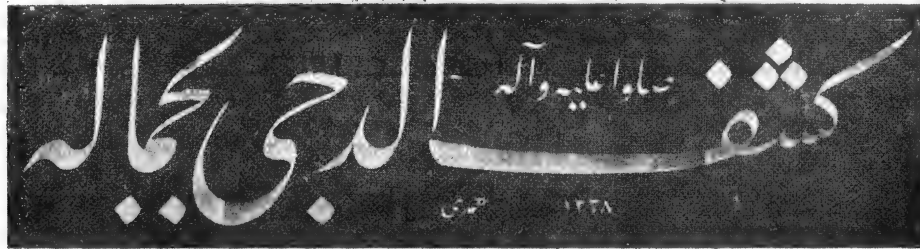 كشف الدجى بجماله
صلوا عليه وآله
١٣٣٨